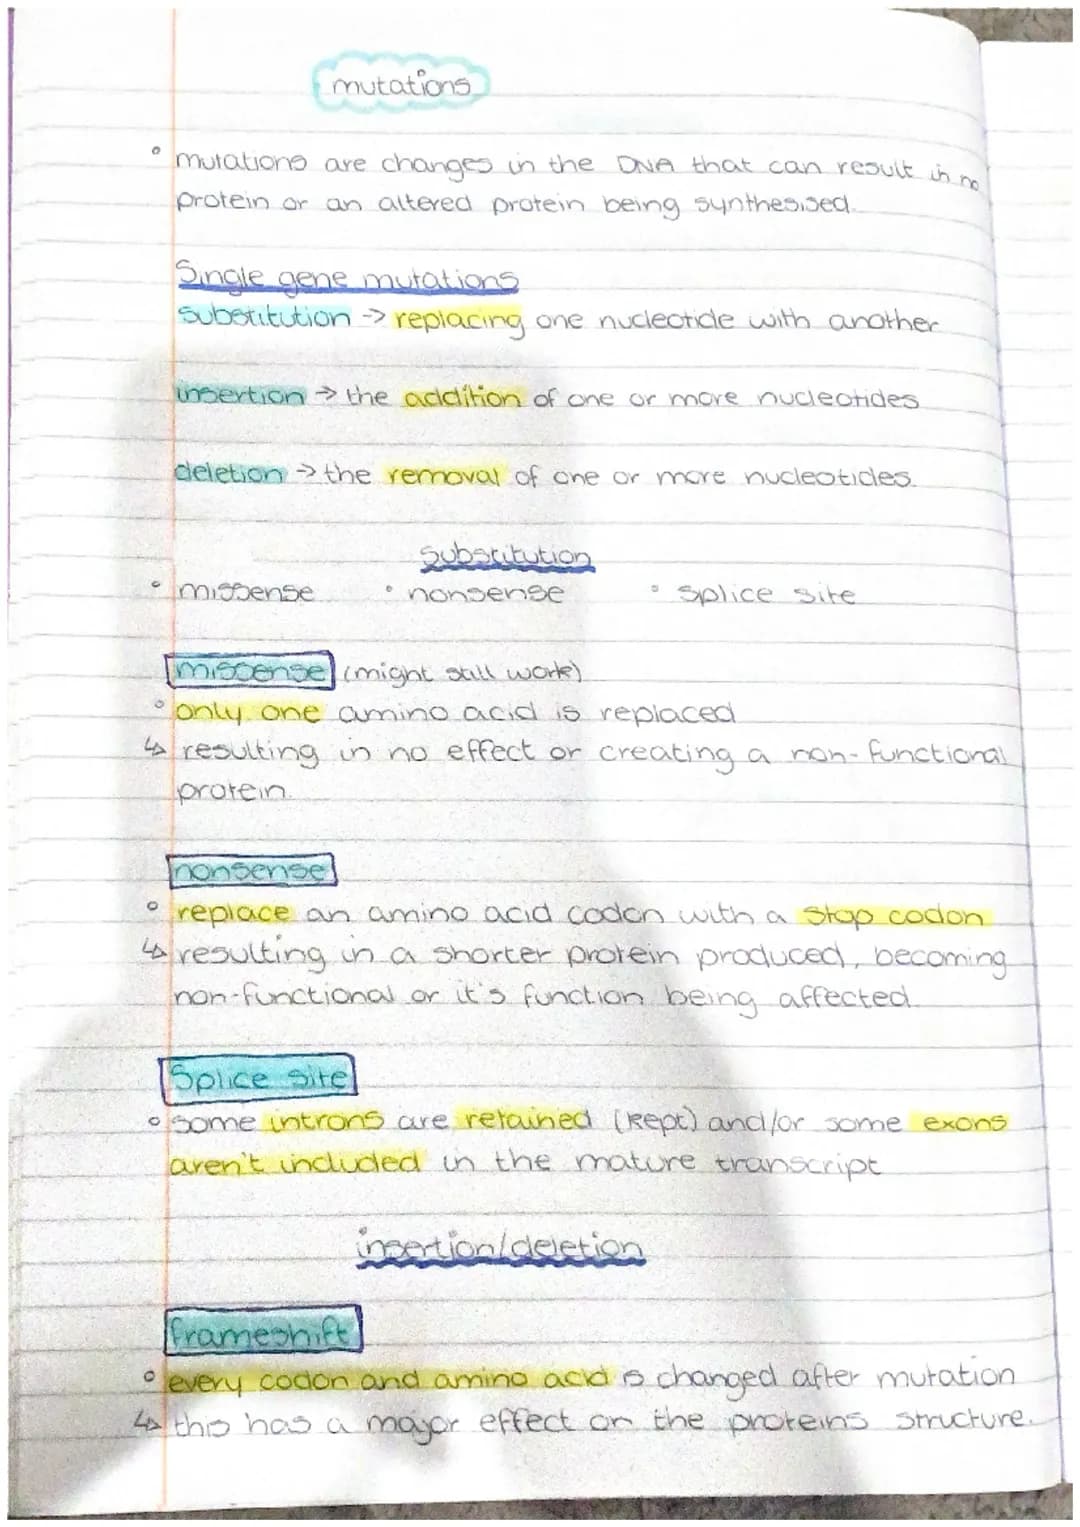 mutations
° mutations are changes in the DNA that can result in no
protein or an altered protein being synthesised.
Single gene mutations
substitution → replacing one nucleotide with another
insertion → the addition of one or more nucleotides
deletion → the removal of one or more nucleotides.
Substitution
° missense ° nonsense ° splice site
missense (might still work)
° only one amino acid is replaced
↳ resulting in no effect or creating a non-functional
protein.
nonsense
° replace an amino acid codon with a stop codon
↳ resulting in a shorter protein produced, becoming
non-functional or it's function being affected.
Splice site
° some introns are retained (kept) and/or some exons
aren't included in the mature transcript
insertion/deletion
frameshift
° every codon and amino acid is changed after mutation
↳ this has a major effect on the proteins structure.